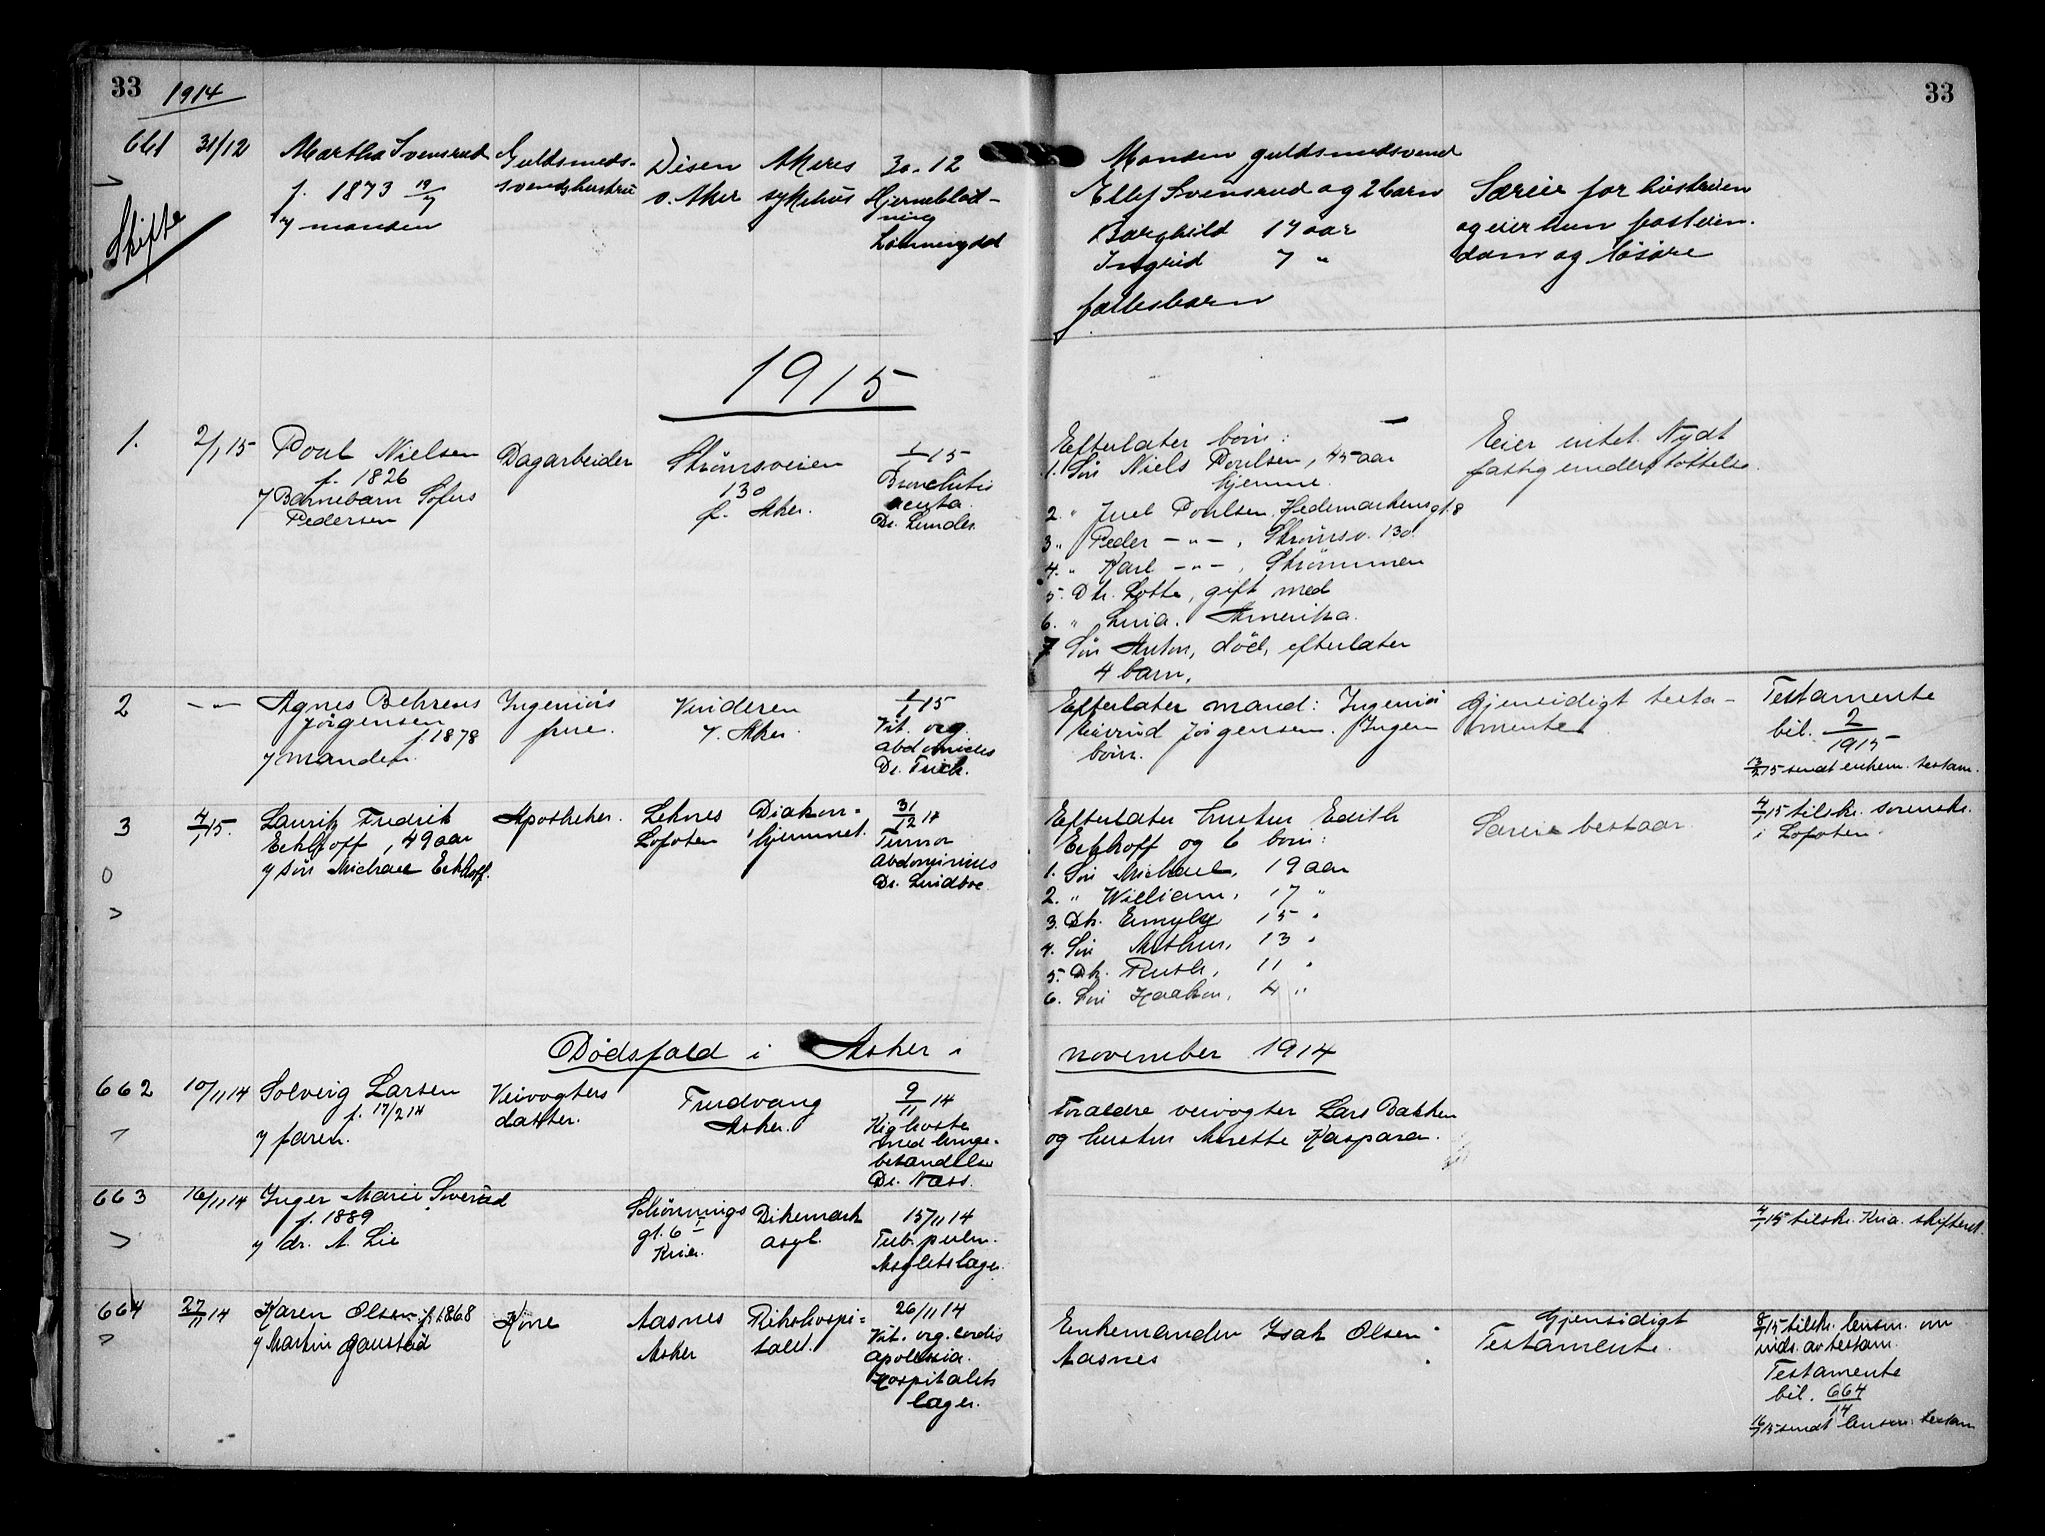 33
1914
33
661
31/12
Martha Svensrud
f. 1873 19/7
y manden
Guldsmeds-
svendshustru
Disen
v. Aker
Akers
sykehus
30. 12
Hjerneblød-
ning
Skifte
Manden guldsmedsvend
Ellef Svensrud og 2 barn
Borghild 17 aar
Ingrid 7 "
fællesbarn
Særeie for hustruen
og eier hun fasteien-
dom og løsøre
1915
1.
2/1 15
Poul Nielsen
f. 1826
y Barnebarn Sofus
Pedersen
Dagarbeider
Strømsveien
130
Ø. Aker.
1/1 15
Bronchitis
acuta.
Dr. Lunder
Efterlater børn:
1. Søn Niels Poulsen, 45 aar
hjemme.
2. " Juel Poulsen, Hedemarkensgt. 8
3. " Peder - " - , Strømsv. 130.
4. " Karl - " - , Strømmen
5. Dtr. Lotte, gift med
6. " Lina. Amerika.
7 Søn Anton, død, efterlater
4 barn.
Eier intet. Nydt
fattigunderstøttelse.
2
- " -
Agnes Behrens
Jørgensen
f. 1878
y manden.
Ingeniørs
frue.
Vinderen
V. Aker.
1/1 15
Vit. org.
abdominis
Efterlater mand: Ingeniør
Eivind Jørgensen. Ingen
børn.
Gjensidigt testa-
mente
Testamente
bil. 2/1915
13/2 15 sendt enkem. testam.
3
4/1 15.
Lauritz Fredrik
Eckhoff, 49 aar
y søn Michael Eckhoff.
Apotheker.
Leknes
Lofoten
Diakon-
hjemmet.
31/12 14
Tumor
abdominis
Dr. Lindboe
Efterlater hustru Edith
Eckhoff og 6 børn:
1. Søn Michael, 19 aar
2. " William, 17 "
3. Dtr. Emyly 15 "
4. Søn Arthur, 13 "
5. Dtr. Ruth, 11 "
6. Søn Haakon, 4 "
Særeie bestaar.
4/1 15 tilskr. sorensks.
i Lofoten.
Dødsfald i Asker i
november 1914
662
10/11 14
Solveig Larsen
f. 17/2 14
y faren.
Veivogters
datter.
Trudvang
Asker.
9/11 14
Kighoste
med lunge-
betændelse
Dr. Næss.
Forældre veivogter Lars Bakken
og hustru Anette Kaspara.
663
16/11 14
Inger Marie Sverud
f. 1889
y dr. A. Lie
Schønnings
gt. 6 I
Kria.
Dikemark
asyl.
15/11 14
Tub. pulm.
Asylets læge.
4/1 15 tilskr. Kria. skifteret.
664
27/11 14
Karen Olsen f. 1868
y Martin Gaustad
Kone
Aasnes
Asker
Rikshospi-
talet.
26/11 14
Vit. org. cordis
apoplexia.
Hospitalets
læge.
Enkemanden Isak Olsen
Aasnes
Gjensidigt
Testamente.
8/1 15 tilskr. lensm. om
inds. av testam.
Testamente
bil. 664/14
16/1 15 sendt lensm. testam